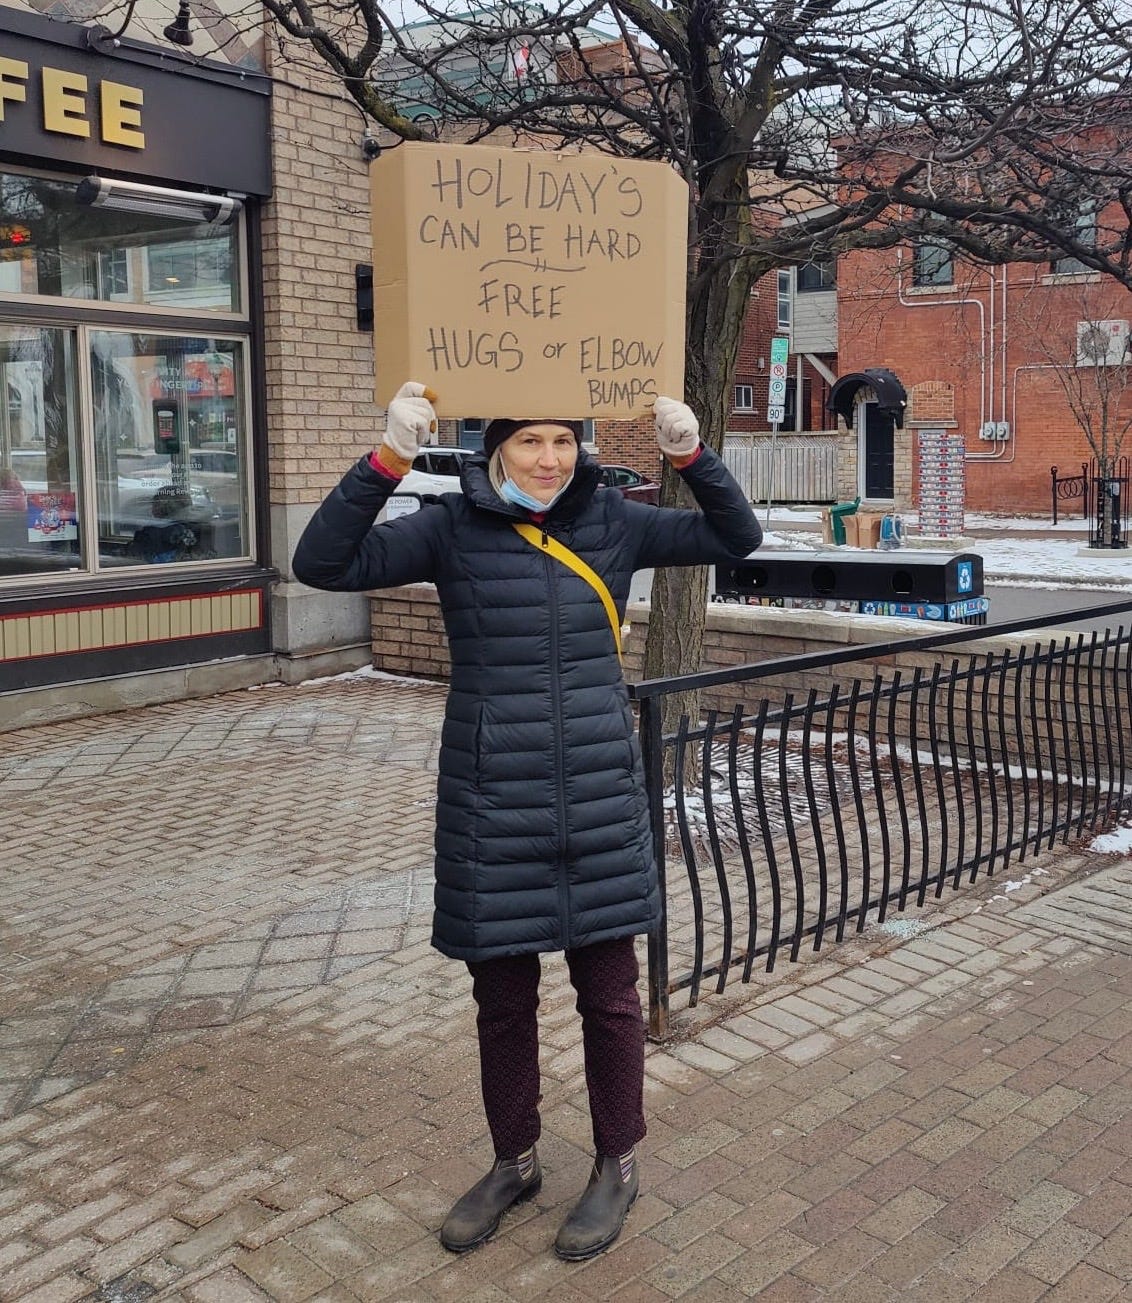 FEE
HOLIDAY'S
CAN BE HARD
FREE
HUGS or ELBOW
BUMPS
P
90°